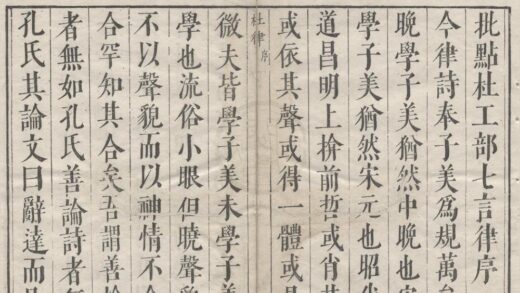 批點杜工部七言律序
今律詩奉子美爲規萬
晚學子美猶然中晚也
學子美猶然宋元也昭
道昌明上揜前哲或肖其
或依其聲或得一體或
杜律 序
微夫皆學子美未學子美
學也流俗小眼但曉聲
不以聲貌而以神情不
合罕知其合矣吾謂善
者無如孔氏善論詩者
孔氏其論文曰辭達而